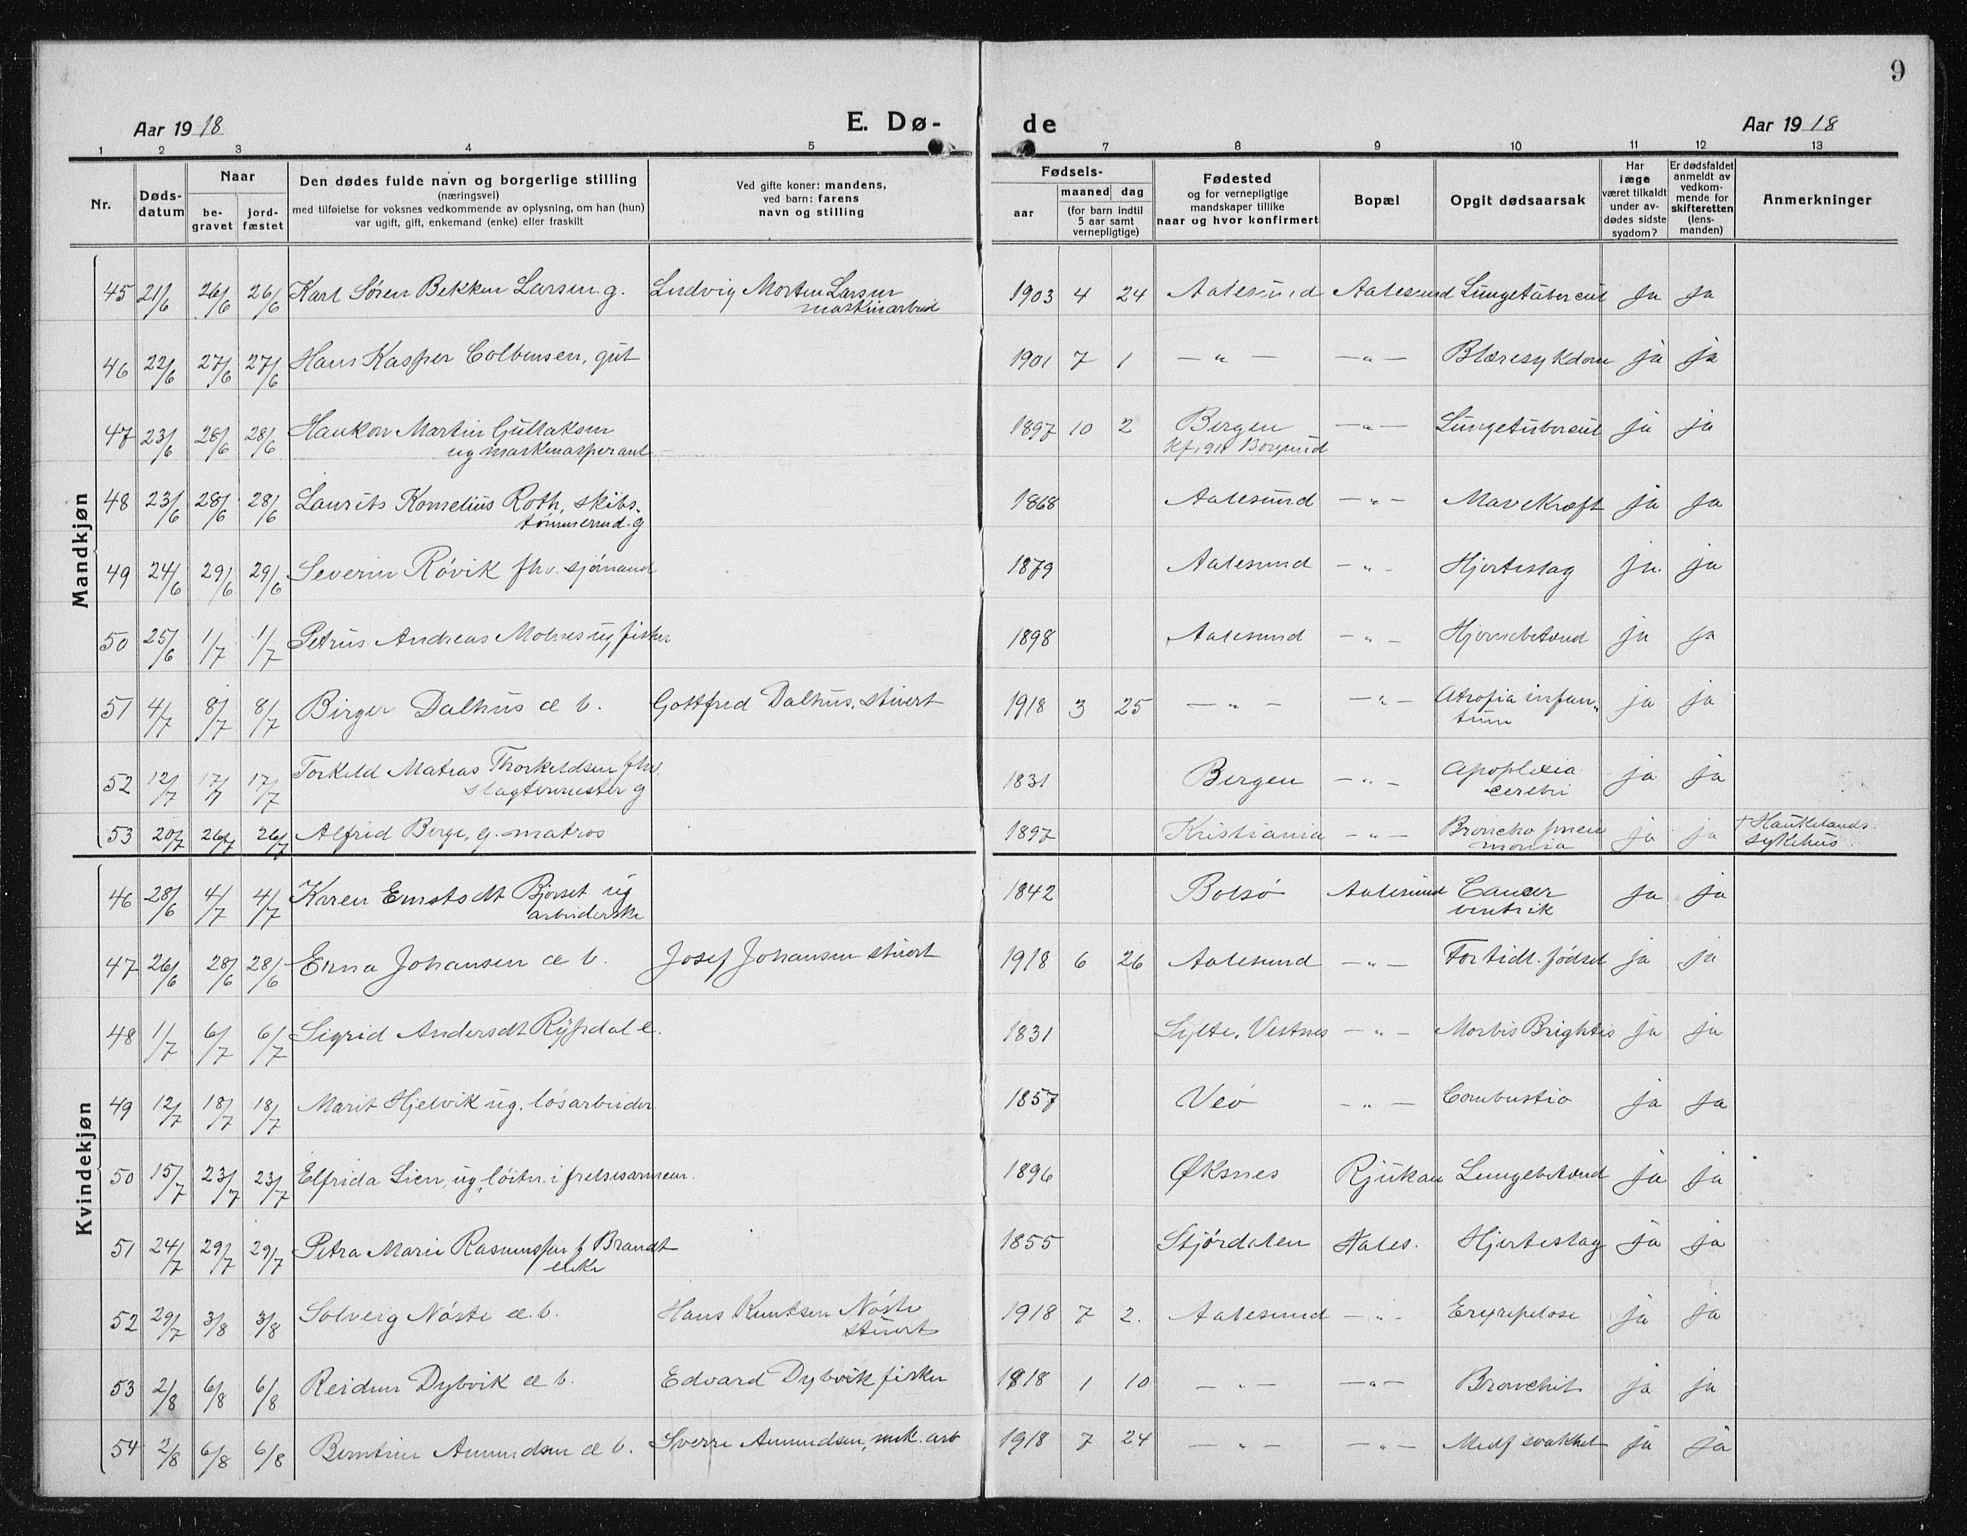 9
Aar 1918 E. Dø- de Aar 1918
1 2 3 4 5 7 8 9 10 11 12 13
Nr. Døds-datum Naar be-gravet jord-fæstet Den dødes fulde navn og borgerlige stilling (næringsvei) med tilføielse for voksnes vedkommende av oplysning, om han (hun) var ugift, gift, enkemand (enke) eller fraskilt Ved gifte koner: mandens, ved barn: farens navn og stilling Fødsels- aar maaned dag (for barn indtil 5 aar samt vernepligtige) Fødested og for vernepligtige mandskaper tillike naar og hvor konfirmert Bopæl Opgit dødsaarsak Har læge været tilkaldt under av-dødes sidste sygdom? Er dødsfaldet anmeldt av vedkom-mende for skifteretten (lens-manden) Anmerkninger
Mandkjøn
45 21/6 26/6 26/6 Karl Søren Bekken Larsen g. Ludvig Morten Larsen maskinarbeid 1903 4 24 Aalesund Aalesund Lungetubercul ja ja
46 22/6 27/6 27/6 Hans Kasper Colbensen, gut 1901 7 1 — " — — " — Blæresykdom ja ja
47 23/6 28/6 28/6 Haakon Martin Gullaksen ug maskinasperant 1897 10 2 Bergen Borgund — " — Lungetubercul ja ja
48 23/6 28/6 28/6 Laurits Kornelius Roth, skibs-tømmermd. g 1868 Aalesund — " — Mavekræft ja ja
49 24/6 29/6 29/6 Severin Røvik fhv. sjømand 1879 Aalesund — " — Hjerteslag ja ja
50 25/6 1/7 1/7 Petrus Andreas Molnes ug fisker 1898 Aalesund — " — Hjernebetænd ja ja
51 4/7 8/7 8/7 Birger Dalhus æ b. Gottfred Dalhus, stuert 1918 3 25 — " — — " — Atrofia infan-tum ja ja
52 12/7 17/7 17/7 Torkild Matias Thorkeldsen fhv. slagtermester g 1831 Bergen — " — Apoplexia cerebri ja ja
53 20/7 26/7 26/7 Alfred Berge, g. matros 1897 Kristiania — " — Broncho pneu monia ja ja † Haukelands sykehus.
Kvindekjøn
46 28/6 4/7 4/7 Karen Ernstsdt Bjørset ug arbeiderske 1842 Bolsø Aalesund Cancer ventrik ja ja
47 26/6 28/6 28/6 Erna Johansen æ b. Josef Johansen stuert 1918 6 26 Aalesund — " — For tidl. fødsel ja ja
48 1/7 6/7 6/7 Sigrid Andersdt Ryfsdal e. 1831 Sylte, Vestnes — " — Morbis Brightis ja ja
49 12/7 18/7 18/7 Marit Hjelvik ug. løsarbeider 1857 Veø — " — Combustio ja ja
50 15/7 23/7 23/7 Elfrida Lien, ug, løitn. i frelsesarmeen. 1896 Øksnes Rjukan Lungebetænd ja ja
51 24/7 29/7 29/7 Petra Marie Rasmussen f Brandt enke 1855 Stjørdalen Aales. Hjerteslag ja ja
52 29/7 3/8 3/8 Solveig Nøste æ. b. Hans Knutsen Nøste stuert 1918 7 2. Aalesund — " — Eryrepelose ja ja
53 2/8 6/8 6/8 Reidun Dybvik æ b. Edvard Dybvik fisker 1918 1 10 — " — — " — Bronchit ja ja
54 2/8 6/8 6/8 Berntine Amundsen æ b. Sverre Amundsen, mek. arb 1918 7 24 — " — — " — Medf svakhet ja ja